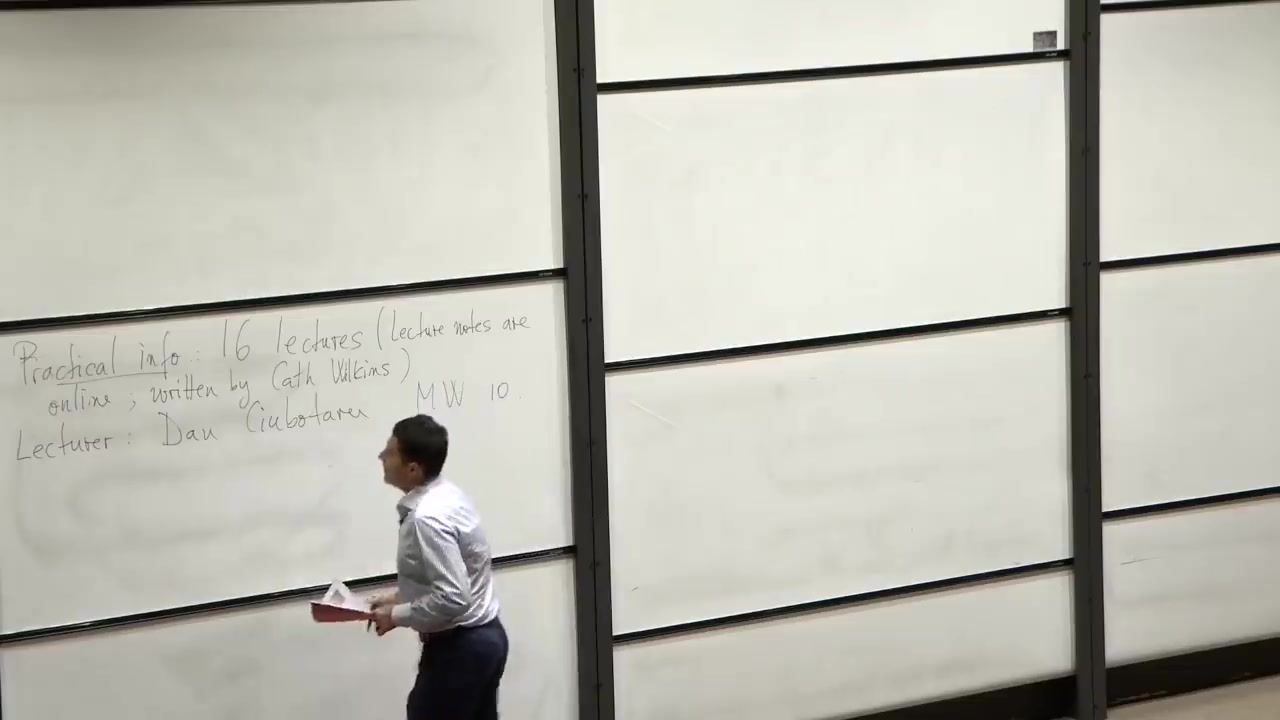 Practical info: 16 lectures (lecture notes are
online; written by Cath Wilkins)
Lecturer: Dan Ciubotaru MW 10.